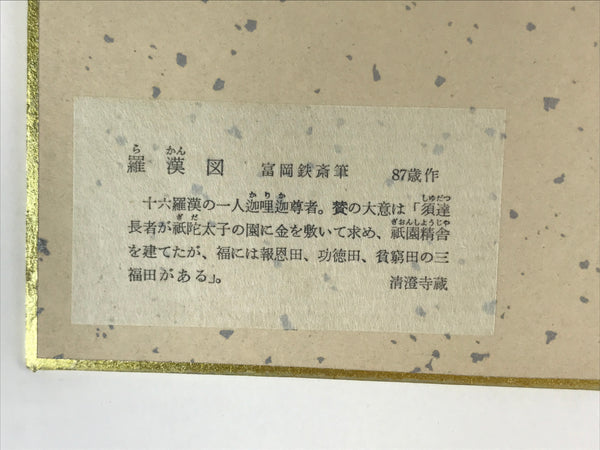 羅漢図 富岡鉄斎筆 87歳作
十六羅漢の一人迦哩迦尊者。賛の大意は「須達
長者が祇陀太子の園に金を敷いて求め、祇園精舎
を建てたが、福には報恩田、功徳田、貧窮田の三
福田がある」。 清澄寺蔵